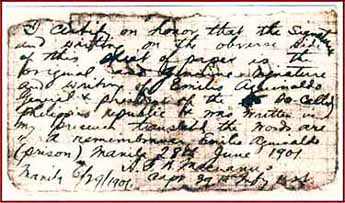 I certify on honor that the signature
and writing on the obverse side
of this sheet of paper is the
original and genuine signature
and writing of Emilio Aguinaldo
General & president of the so-called
philippine republic & was written in
my presence translated the words are
a remembrance Emilio Aguinaldo
(prison) Manila 28th June 1901
Manila 6/29/1901 Capt 29th